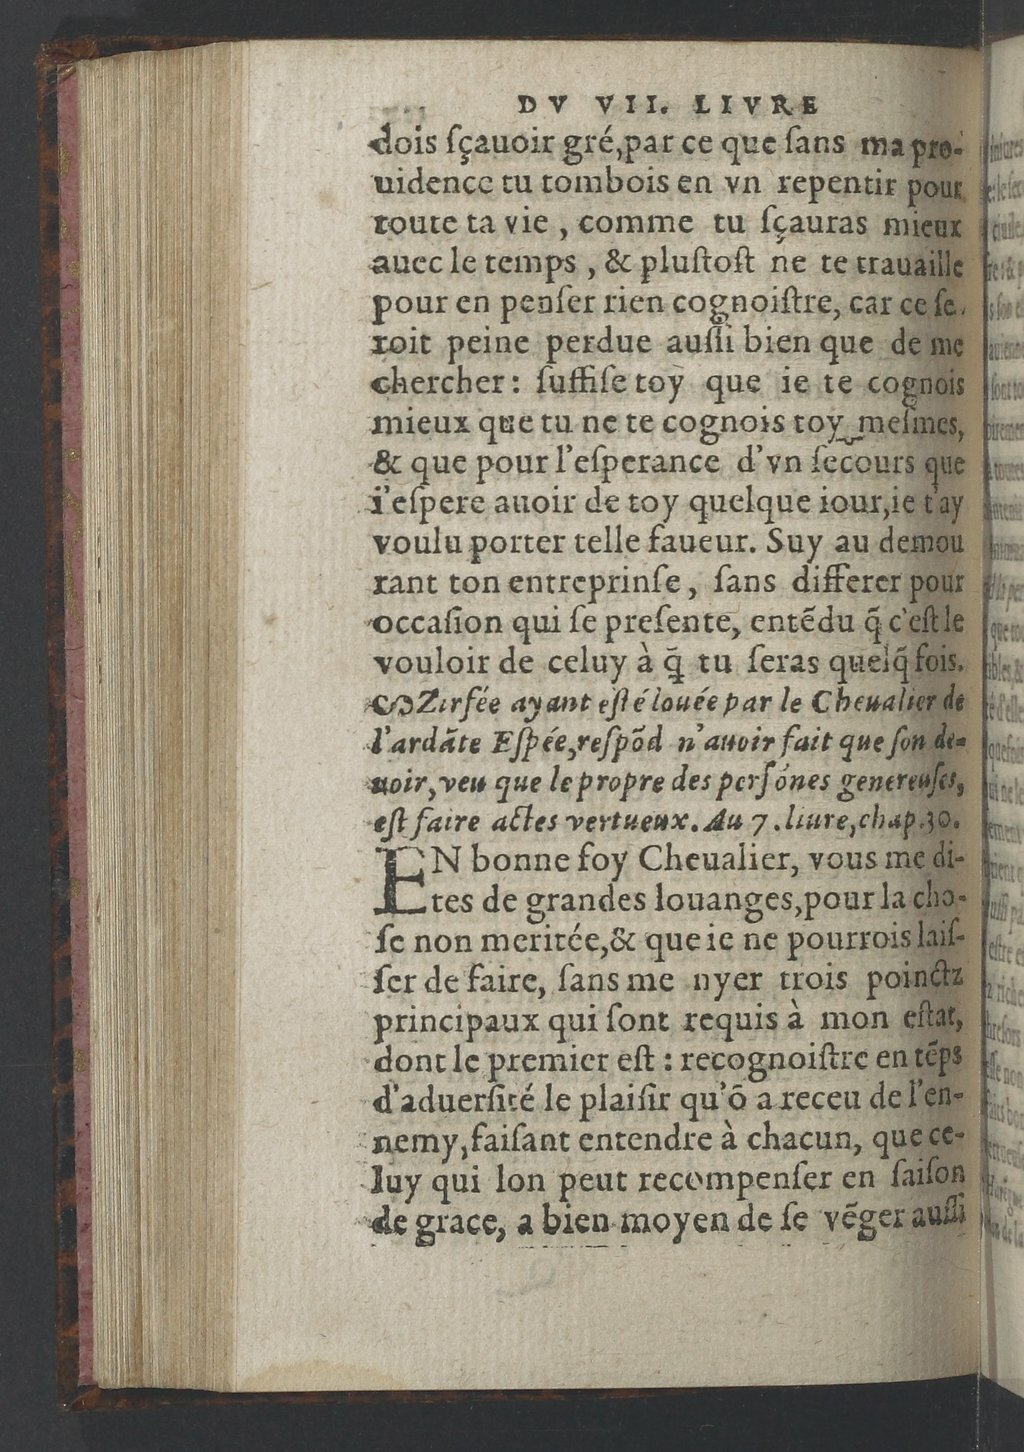 DV VII. LIVRE
dois ſçauoir gré,par ce que ſans ma pro-
uidence tu tombois en vn repentir pour
toute ta vie , comme tu ſçauras mieux
auec le temps , & pluſtoſt ne te trauaille
pour en penſer rien cognoiſtre, car ce ſe.
roit peine perdue auſſi bien que de me
chercher: ſuffiſe toy que ie te cognois
mieux que tu ne te cognois toy meſmes,
& que pour l'eſperance d'vn ſecours que
i'eſpere auoir de toy quelque iour,ie t'ay
voulu porter telle faueur. Suy au demou
rant ton entreprinſe, ſans differer pour
occaſion qui ſe preſente, entẽdu q̃ c'eſt le
vouloir de celuy à q̃ tu ſeras quelq̃ fois.
Zirfée ayant eſté louée par le Cheualier de
l'ardãte Eſpée,reſpõd n'auoir fait que ſon de=
uoir,veu que le propre des perſónes genereuſes,
eſt faire actes vertueux. Au 7. liure,chap.30.
EN bonne foy Cheualier, vous me di-
tes de grandes louanges,pour la cho-
ſe non meritée,& que ie ne pourrois laiſ-
ſer de faire, ſans me nyer trois poinctz
principaux qui ſont requis à mon eſtat,
dont le premier eſt : recognoiſtre en tẽps
d'aduerſité le plaiſir qu'õ a receu de l'en-
nemy,faiſant entendre à chacun, que ce-
luy qui lon peut recompenſer en ſaiſon
de grace, a bien moyen de ſe vẽger auſſi